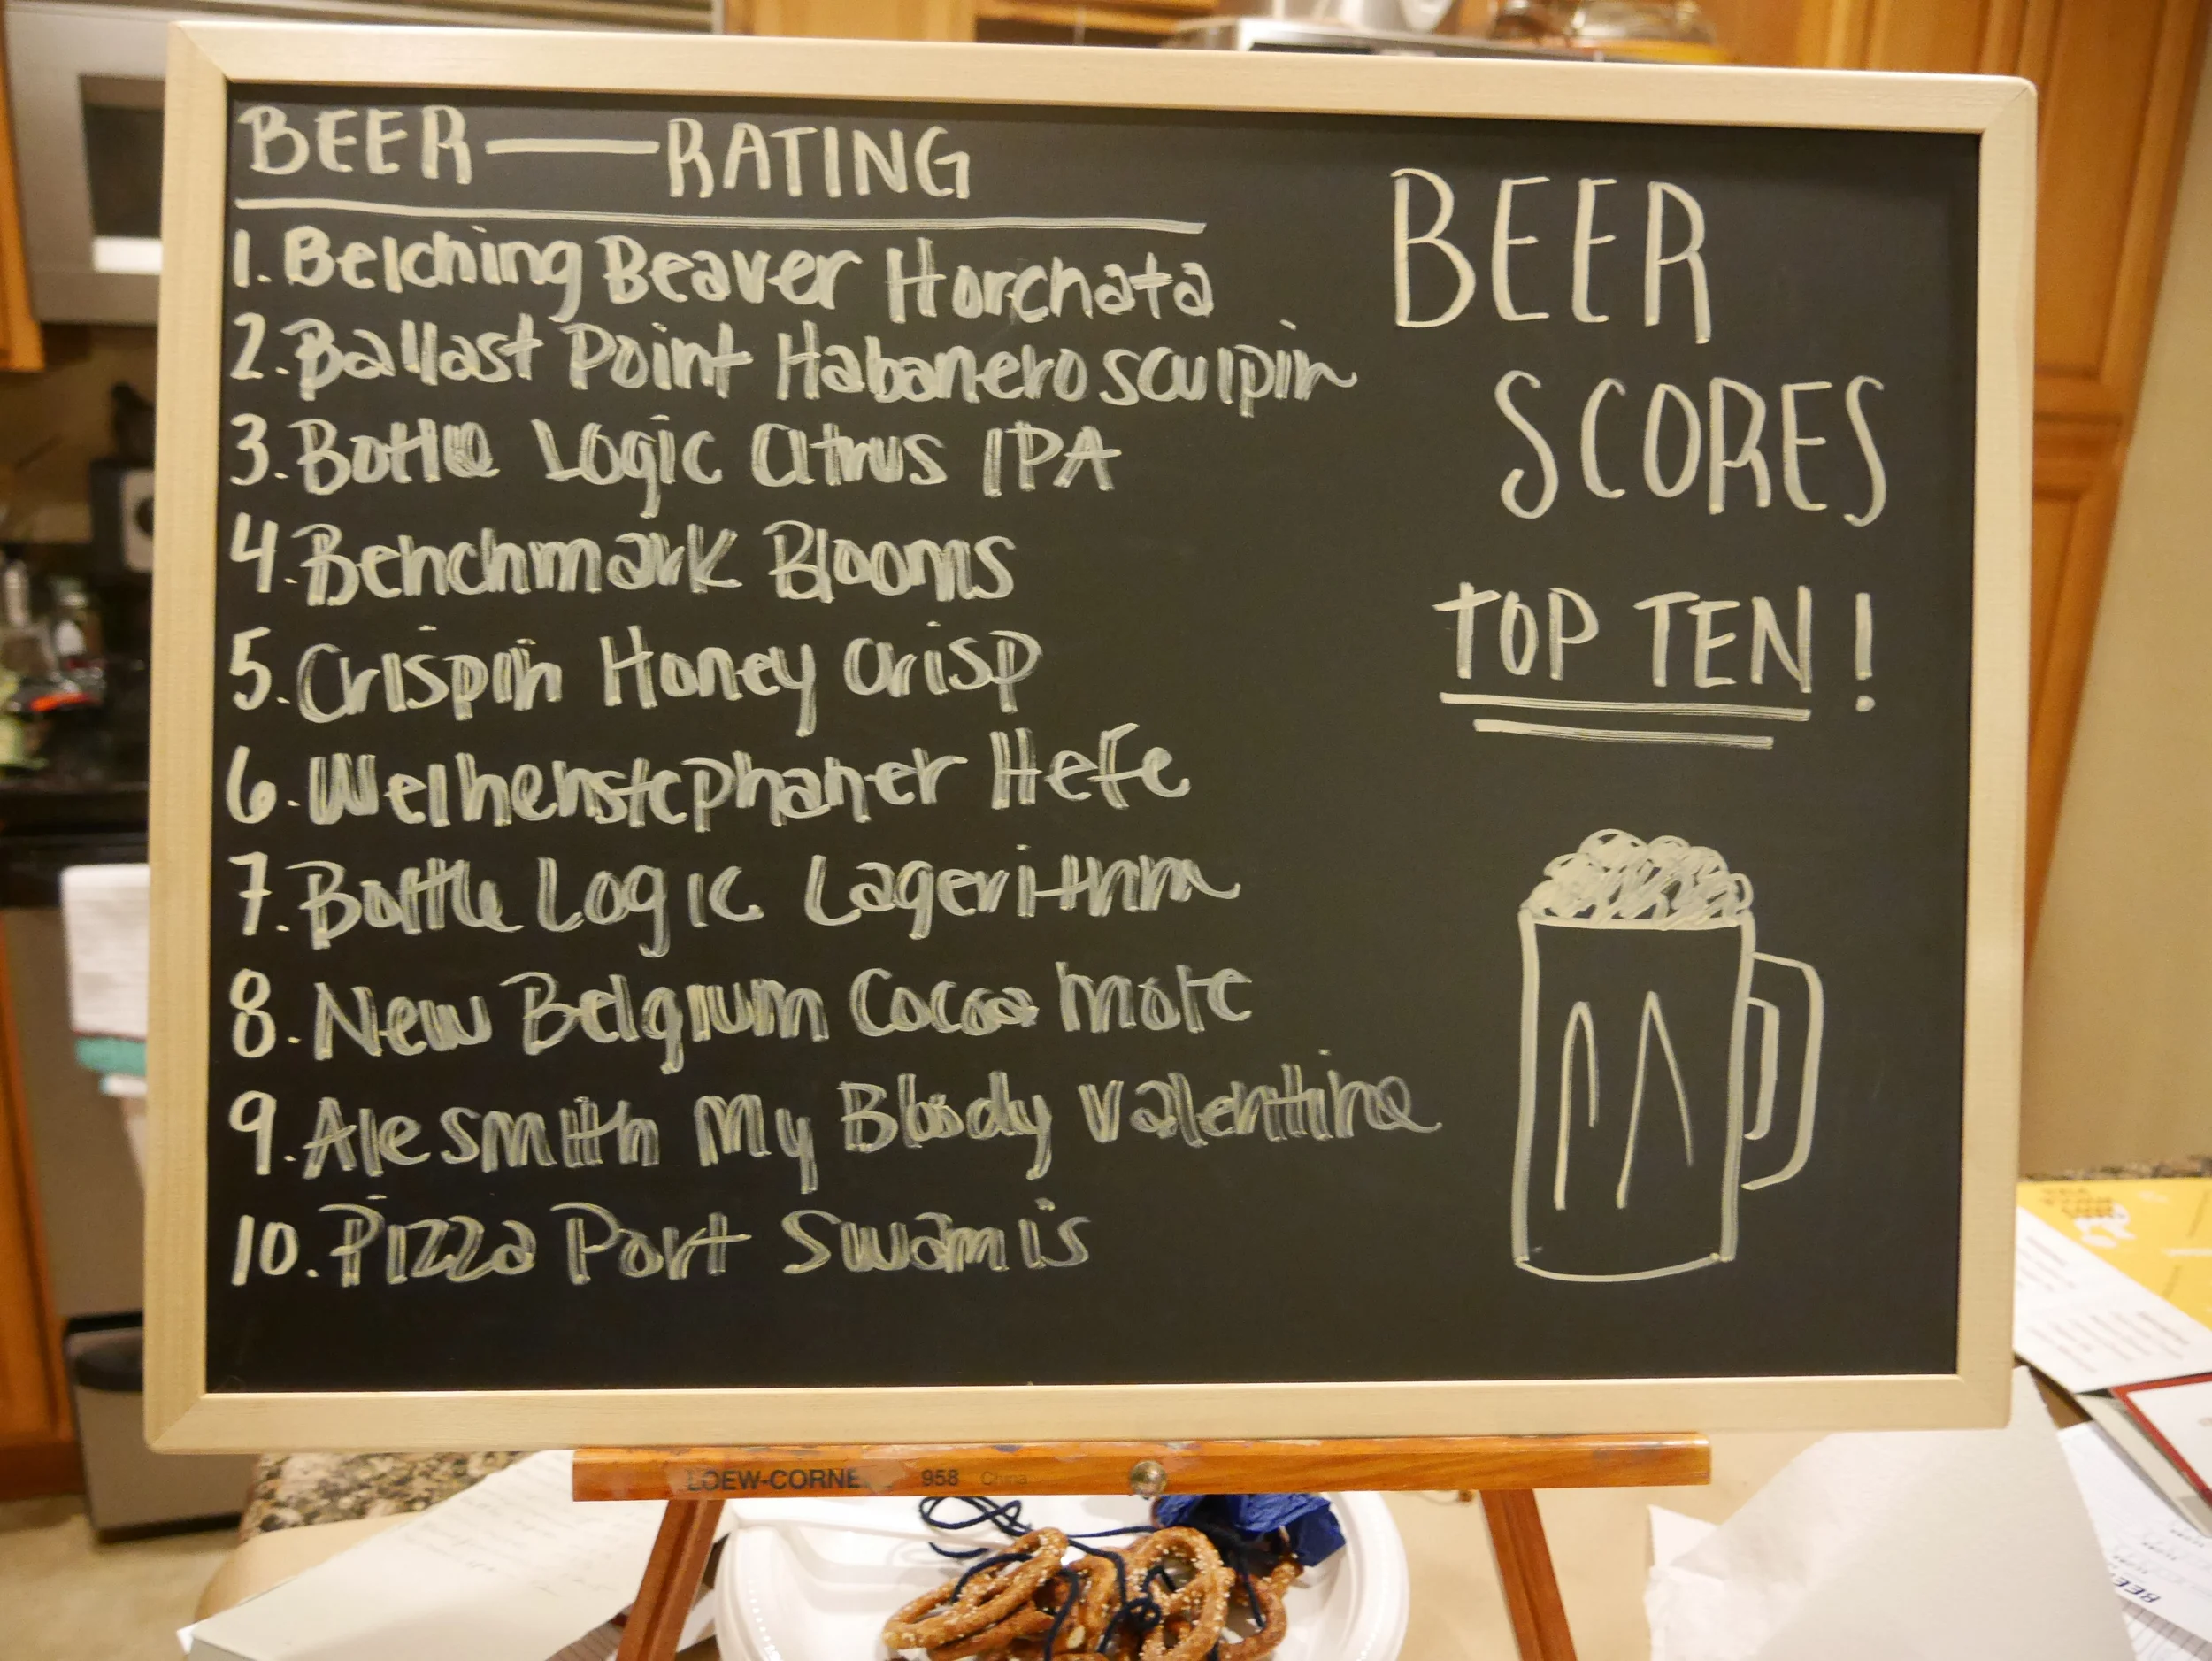 BEER — RATING
1. Belching Beaver Horchata
2. Ballast Point Habanero sculpin
3. Bottle Logic Citrus IPA
4. Benchmark Blooms
5. Crispin Honey Crisp
6. Weihenstephaner Hefe
7. Bottle Logic Lagerithm
8. New Belgium Cocoa Mole
9. Alesmith My Bloody Valentine
10. Pizza Port Swamis
BEER
SCORES
TOP TEN!
LOEW-CORNE 958 China